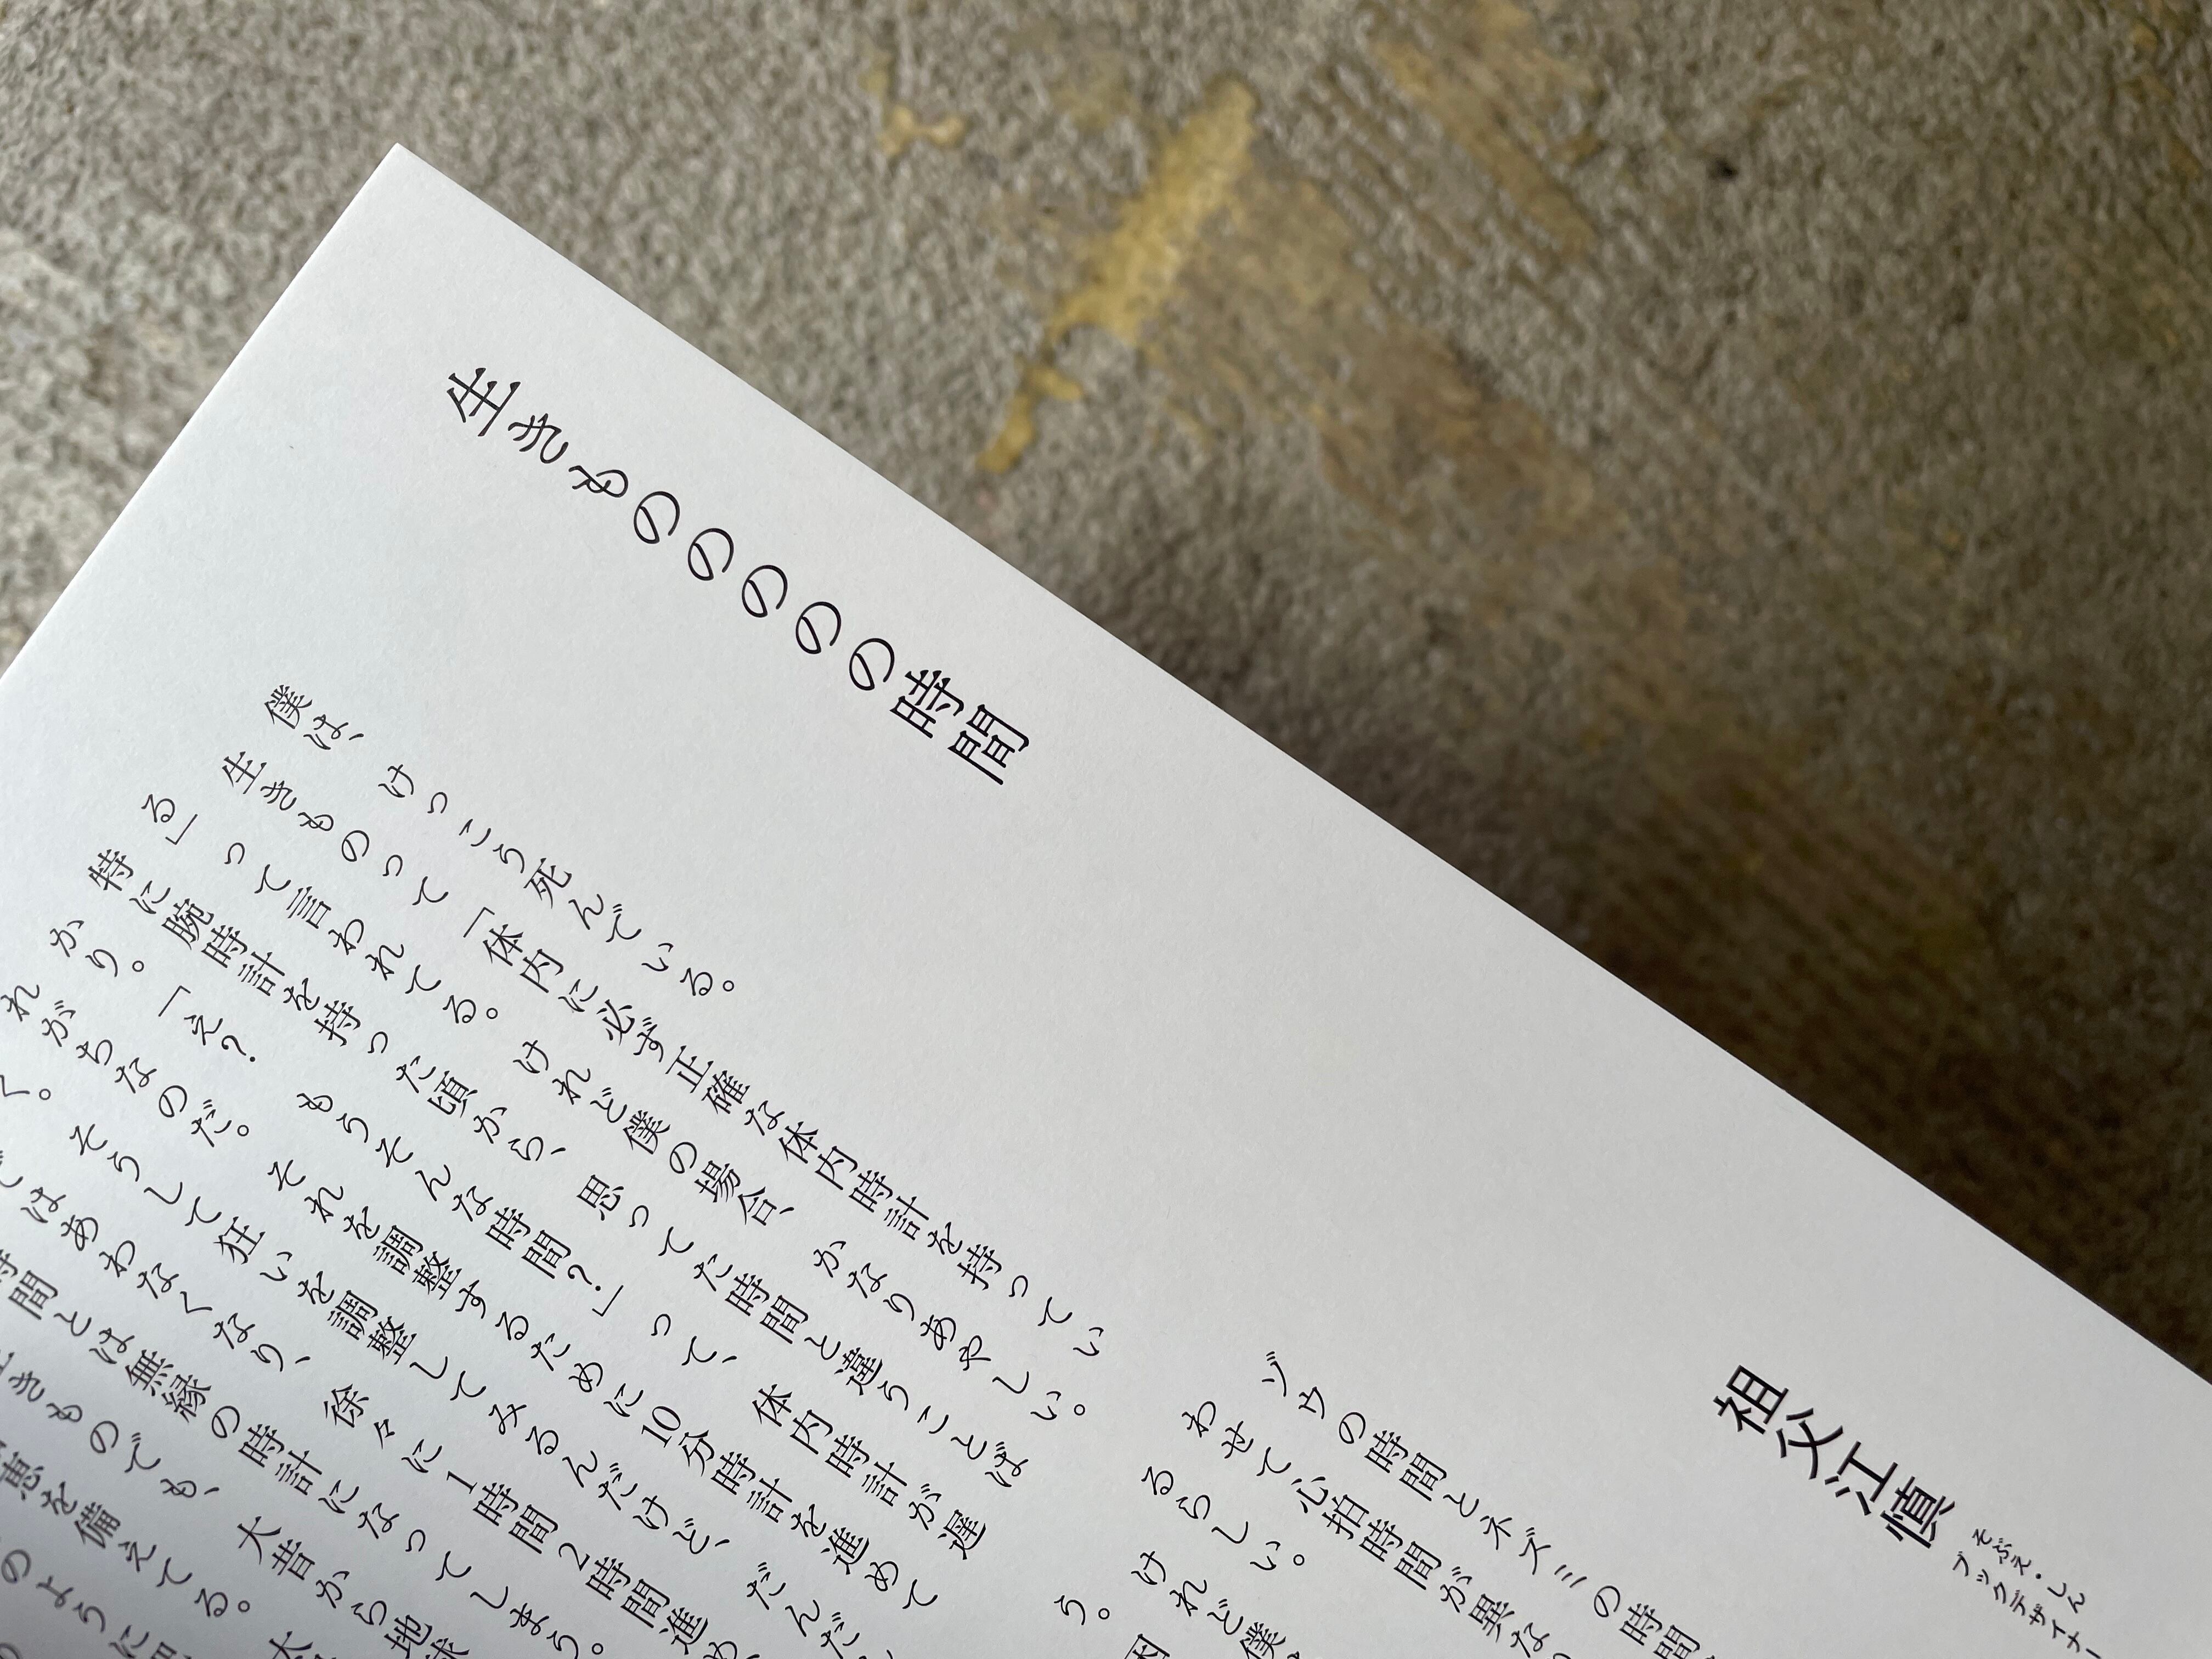 生きもののののの時間
祖父江慎
そぶえ・しん
ブックデザイナー
僕は、けっこう死んでいる。
生きものって「体内に必ず正確な体内時計を持ってい
る」って言われてる。けれど僕の場合、かなりあやしい。
特に腕時計を持った頃から、思ってた時間と違うことば
かり。「え？　もうそんな時間？」って、体内時計が遅
れがちなのだ。それを調整するために10分時計を進めて
く。そうして狂いを調整してみるんだけど、だんだ
ではあわなくなり、徐々に1時間2時間進め
時間とは無縁の時計になってしまう。
生きものでも、大昔から地球
恵を備えてる。
のように
ゾウの時間とネズミの時間
わせて心拍時間が異な
るらしい。けれど僕
う。